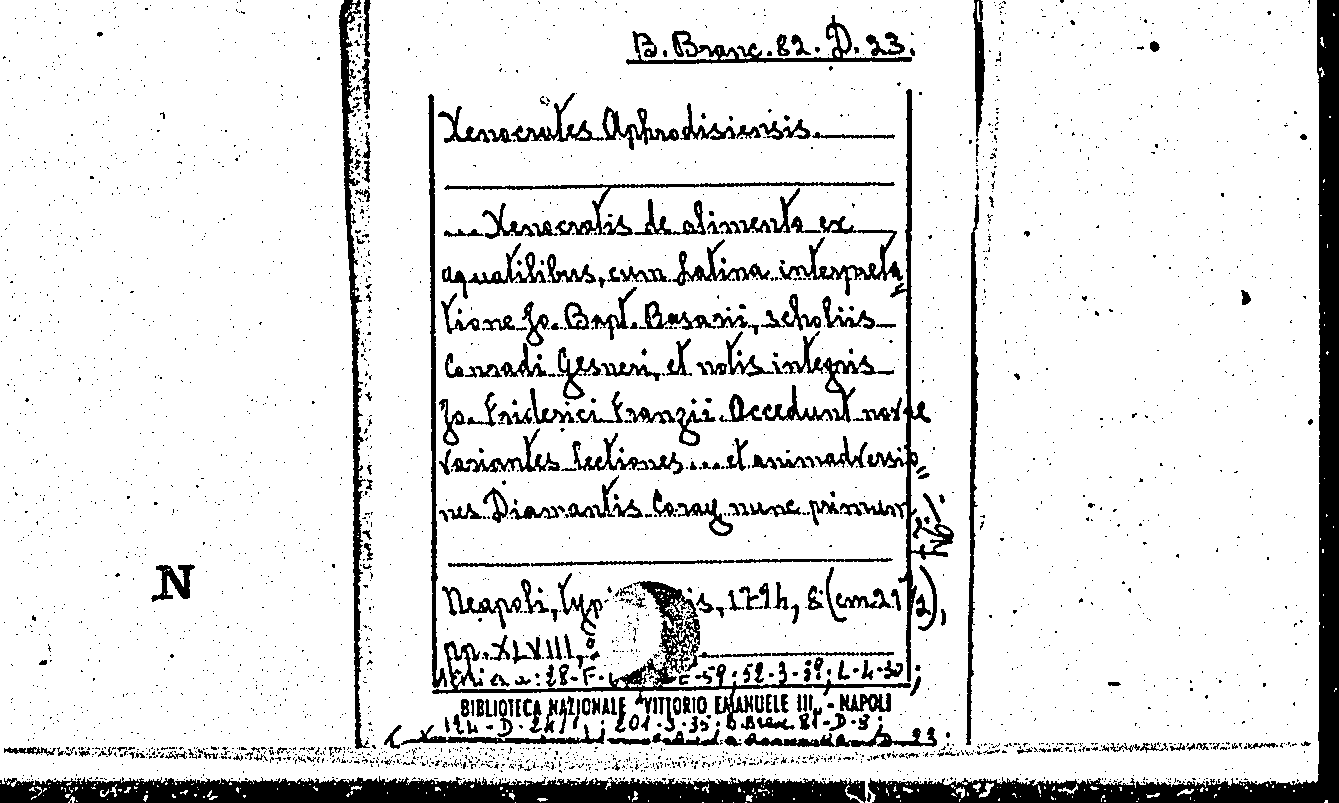 B. Branc. 82. D. 23.
Xenocrates Aphrodisiensis.
... Xenocratis de alimento ex
aquatilibus, cum Latina interpreta
tione Jo. Bapt. Rasarii, scholiis
Conradi Gesneri, et notis integris
Jo. Friderici Franzii. Accedunt novae
variantes lectiones ... et animadversio„
nes Diamantis Coray nunc primum
Neapoli, typ is, 1794, 8(cm21 1/2),
pp. XLVIII,
59; 52-3-39; L-4-30;
BIBLIOTECA NAZIONALE "VITTORIO EMANUELE III„ - NAPOLI
B. Branc. 81-D-3;
23.
N